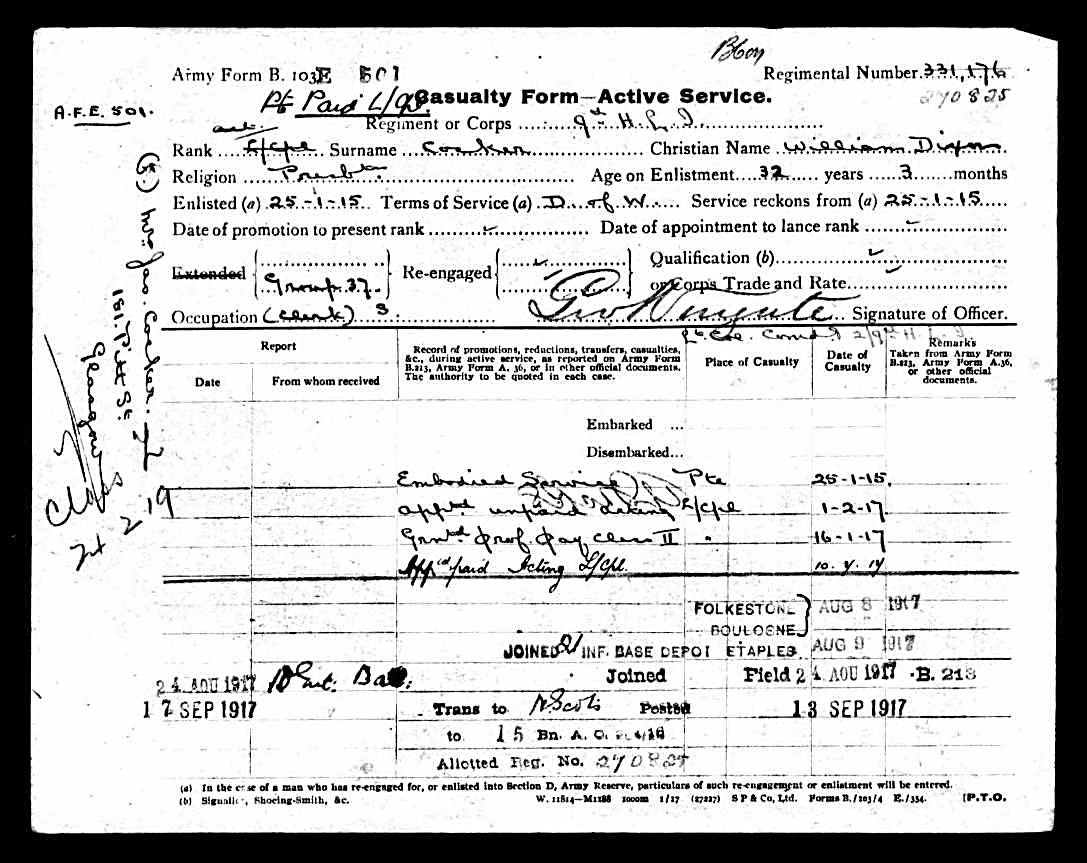 B Coy
Army Form B. 103E 501
Regimental Number 331,176
270825
A.F.E. 501.
Pte Paid L/Cpl
Casualty Form—Active Service.
Regiment or Corps 9th H. L. I.
act.
Rank L/Cpl Surname Cocker Christian Name William Dixon
Religion Presbtn Age on Enlistment 32 years 3 months
Enlisted (a) 25-1-15 Terms of Service (a) D. of W. Service reckons from (a) 25-1-15
Date of promotion to present rank Date of appointment to lance rank
Extended Group 37. Re-engaged Qualification (b)
or Corps Trade and Rate
Occupation (Clerk) S Signature of Officer.
Lt Col. Comdg 2/9th H. L. I
(S.) Mrs Jas. Cocker.
181. Pitt St.
Glasgow
Class
2 19
Report
Date
From whom received
Record of promotions, reductions, transfers, casualties, &c., during active service, as reported on Army Form B.213, Army Form A. 36, or in other official documents. The authority to be quoted in each case.
Place of Casualty
Date of Casualty
Remarks
Taken from Army Form B.213, Army Form A.36, or other official documents.
Embarked ...
Disembarked...
Embodied Service Pte 25-1-15.
apptd unpaid Acting L/Cpl 1-2-17.
Grntd Prof. Pay Class II " 16-1-17
App'd paid Acting L/Cpl. 10. 4. 17
FOLKESTONE AUG 8 1917
BOULOGNE
JOINED 21 INF. BASE DEPOT ETAPLES AUG 9 1917
24 AOU 1917 Joined Field 24 AOU 1917 B. 213
17 SEP 1917 Trans to R Scots Posted 13 SEP 1917
to 15 Bn. A. O.
Allotted Reg. No. 270825
(a) In the case of a man who has re-engaged for, or enlisted into Section D, Army Reserve, particulars of such re-engagement or enlistment will be entered.
(b) Signaller, Shoeing-Smith, &c. W. 11814—M1288 1000m 1/17 (27227) S P & Co, Ltd. Forms B./103/4 E./354. [P.T.O.